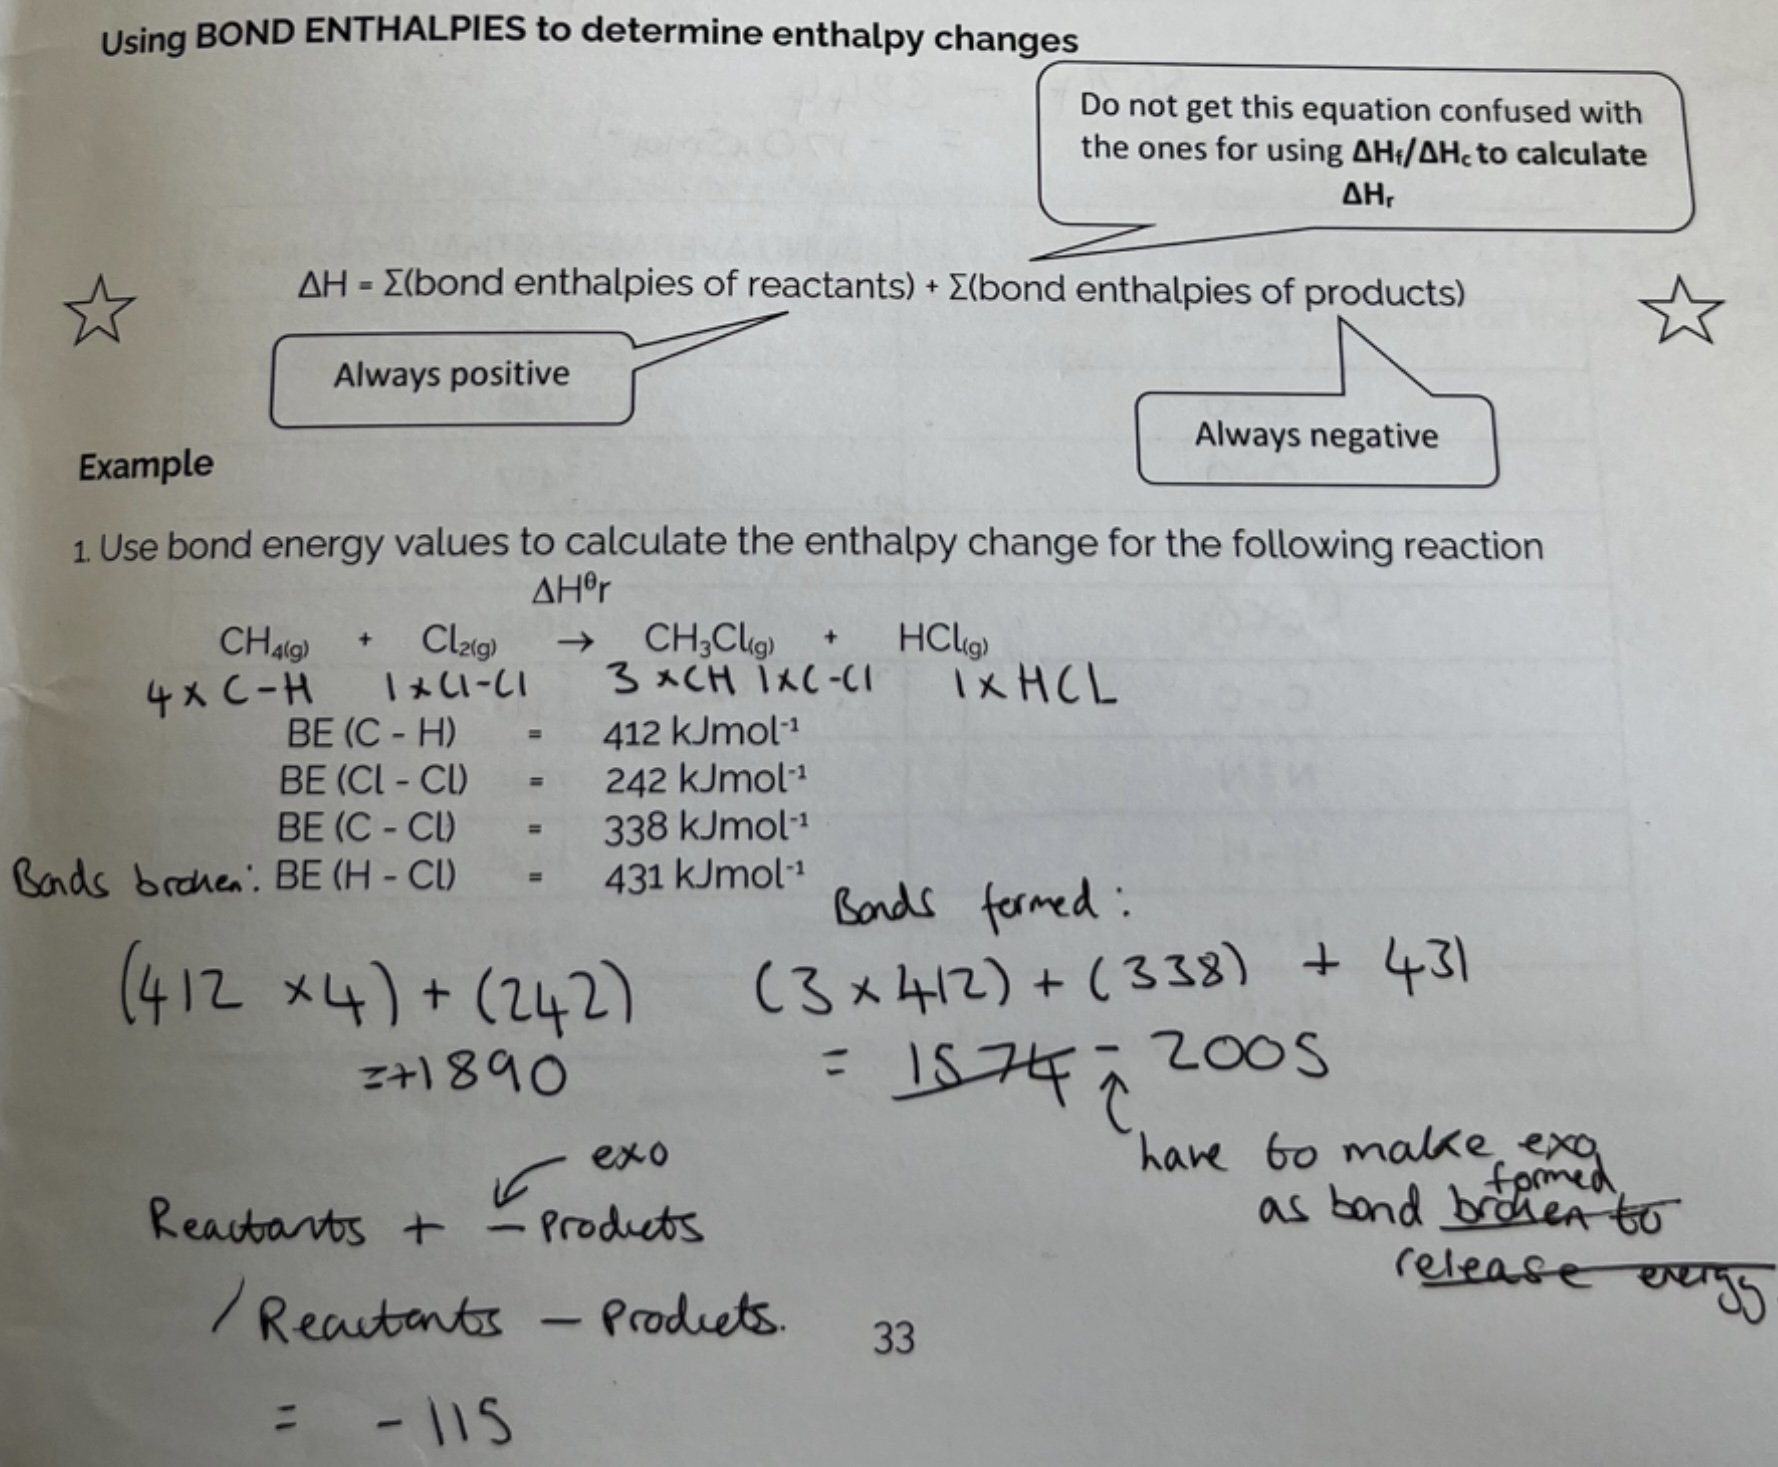 Using BOND ENTHALPIES to determine enthalpy changes
Do not get this equation confused with
the ones for using ΔHf/ΔHc to calculate
ΔHr
ΔH = Σ(bond enthalpies of reactants) + Σ(bond enthalpies of products)
Always positive
Always negative
Example
1. Use bond energy values to calculate the enthalpy change for the following reaction
ΔHᶿr
CH₄(g) + Cl₂(g) → CH₃Cl(g) + HCl(g)
4 × C-H 1 × Cl-Cl 3 × CH 1 × C-Cl 1 × HCL
BE (C - H) = 412 kJmol⁻¹
BE (Cl - Cl) = 242 kJmol⁻¹
BE (C - Cl) = 338 kJmol⁻¹
Bonds broken: BE (H - Cl) = 431 kJmol⁻¹
Bonds formed:
(412 × 4) + (242) (3 × 412) + (338) + 431
= +1890 = 1574 - 2005
have to make exo
formed
as bond broken to
release energy
exo
Reactants + - Products
/ Reactants - Products.
33
= -115